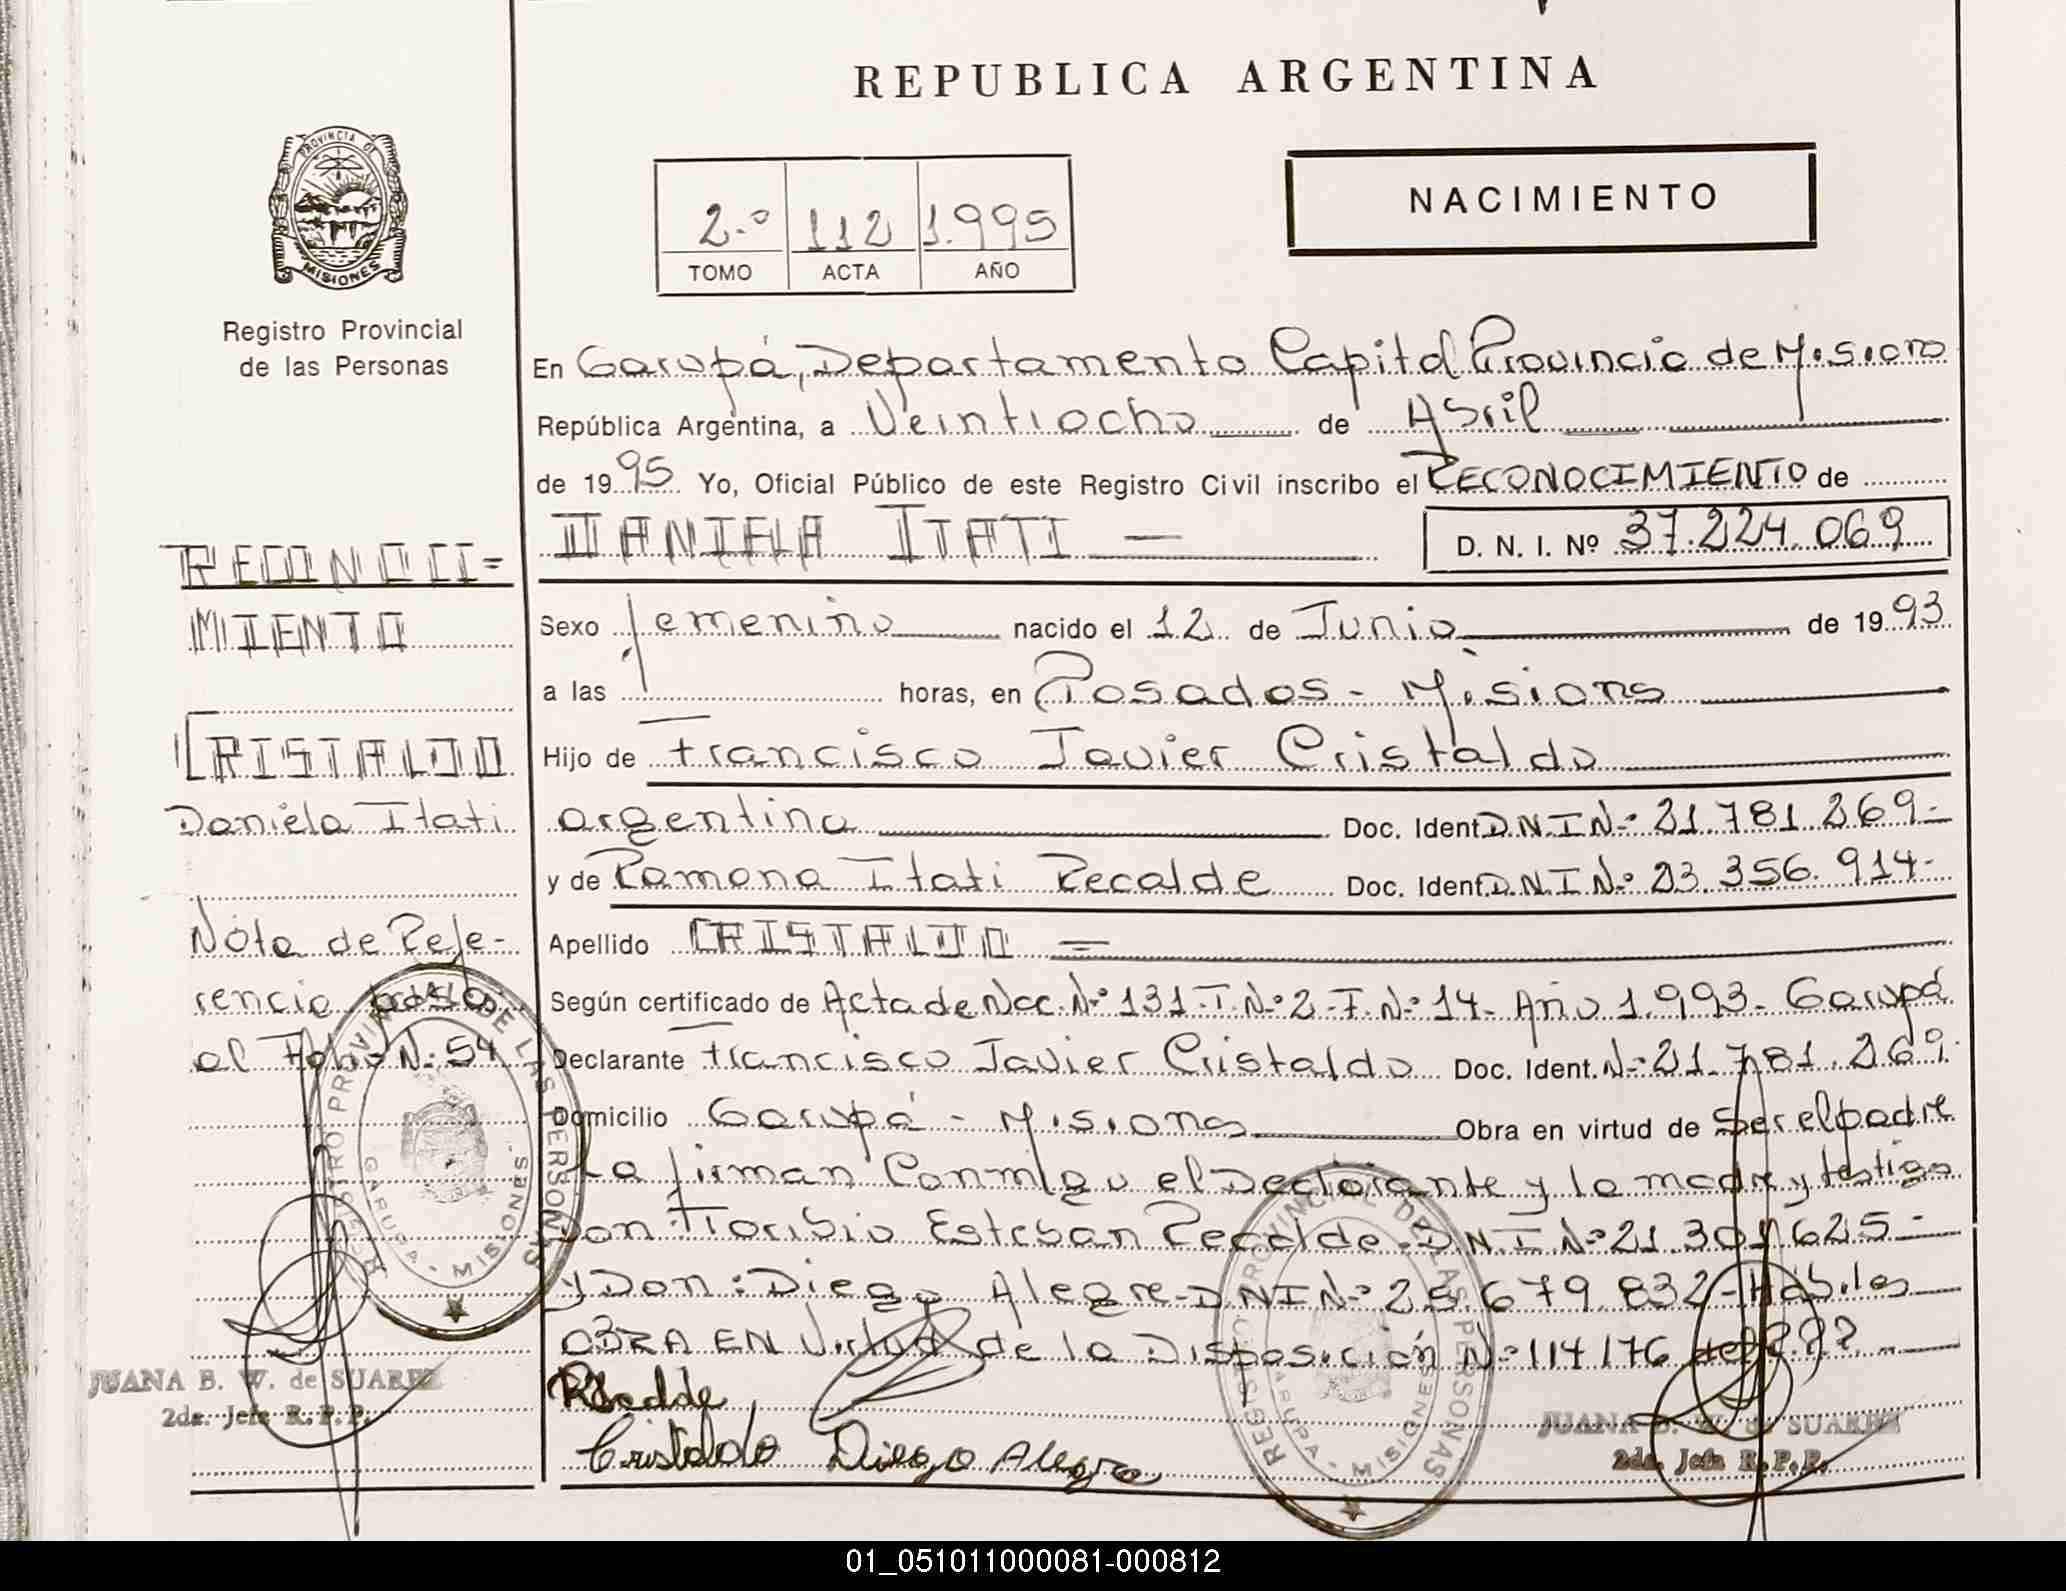 REPUBLICA ARGENTINA
PROVINCIA DE
MISIONES
Registro Provincial
de las Personas
2.º 112 1.995
TOMO ACTA AÑO
NACIMIENTO
En Garupá, Departamento Capital Provincia de Misiones
República Argentina, a Veintiocho de Abril
de 1995 Yo, Oficial Público de este Registro Civil inscribo el RECONOCIMIENTO de
DANIELA ITATI — D. N. I. Nº 37.224.069
Sexo femenino nacido el 12 de Junio de 1993
a las horas, en Posadas - Misiones
Hijo de Francisco Javier Cristaldo
argentina Doc. Ident. DNI Nº 21.781.269-
y de Ramona Itati Recalde Doc. Ident. DNI Nº 23.356.914-
Apellido CRISTALDO =
Según certificado de Acta de Nac. Nº 131-T.Nº 2-F.Nº 14- Año 1.993- Garupá
Declarante Francisco Javier Cristaldo Doc. Ident. Nº 21.781.269
Domicilio Garupá - Misiones Obra en virtud de Ser el padre
La firman Conmigo el Declarante y la madre y testigo
Don: Toribio Esteban Recalde-DNI Nº 21.301.625-
y Don: Diego Alegre-DNI Nº 25.679.832-Hábiles
OBRA EN Virtud de la Disposición Nº 114/76 del
Recalde
Cristaldo Diego Alegre
RECONOCI=
MIENTO
CRISTALDO
Daniela Itati
Nota de Refe-
rencia pasa
al Folio Nº 54
REGISTRO PROVINCIAL DE LAS PERSONAS
GARUPA - MISIONES
JUANA B. W. de SUAREZ
2da. Jefe R.P.P.
REGISTRO PROVINCIAL DE LAS PERSONAS
GARUPA - MISIONES
JUANA B. W. de SUAREZ
2da. Jefa R.P.P.
01_051011000081-000812